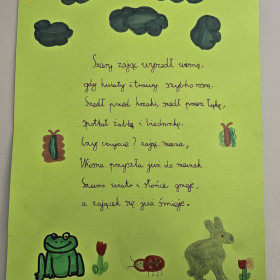 Szary zając wyszedł wiosną,
gdy kwiaty i trawy szybko rosną.
Szedł przed krzaki, szedł przez łąkę,
spotkał żabkę i biedronkę.
Czy czujecie? zając
Wiosna przyszła już do
Szumi wiatr i słońce grzeje,
a zajączek się już śmieje.